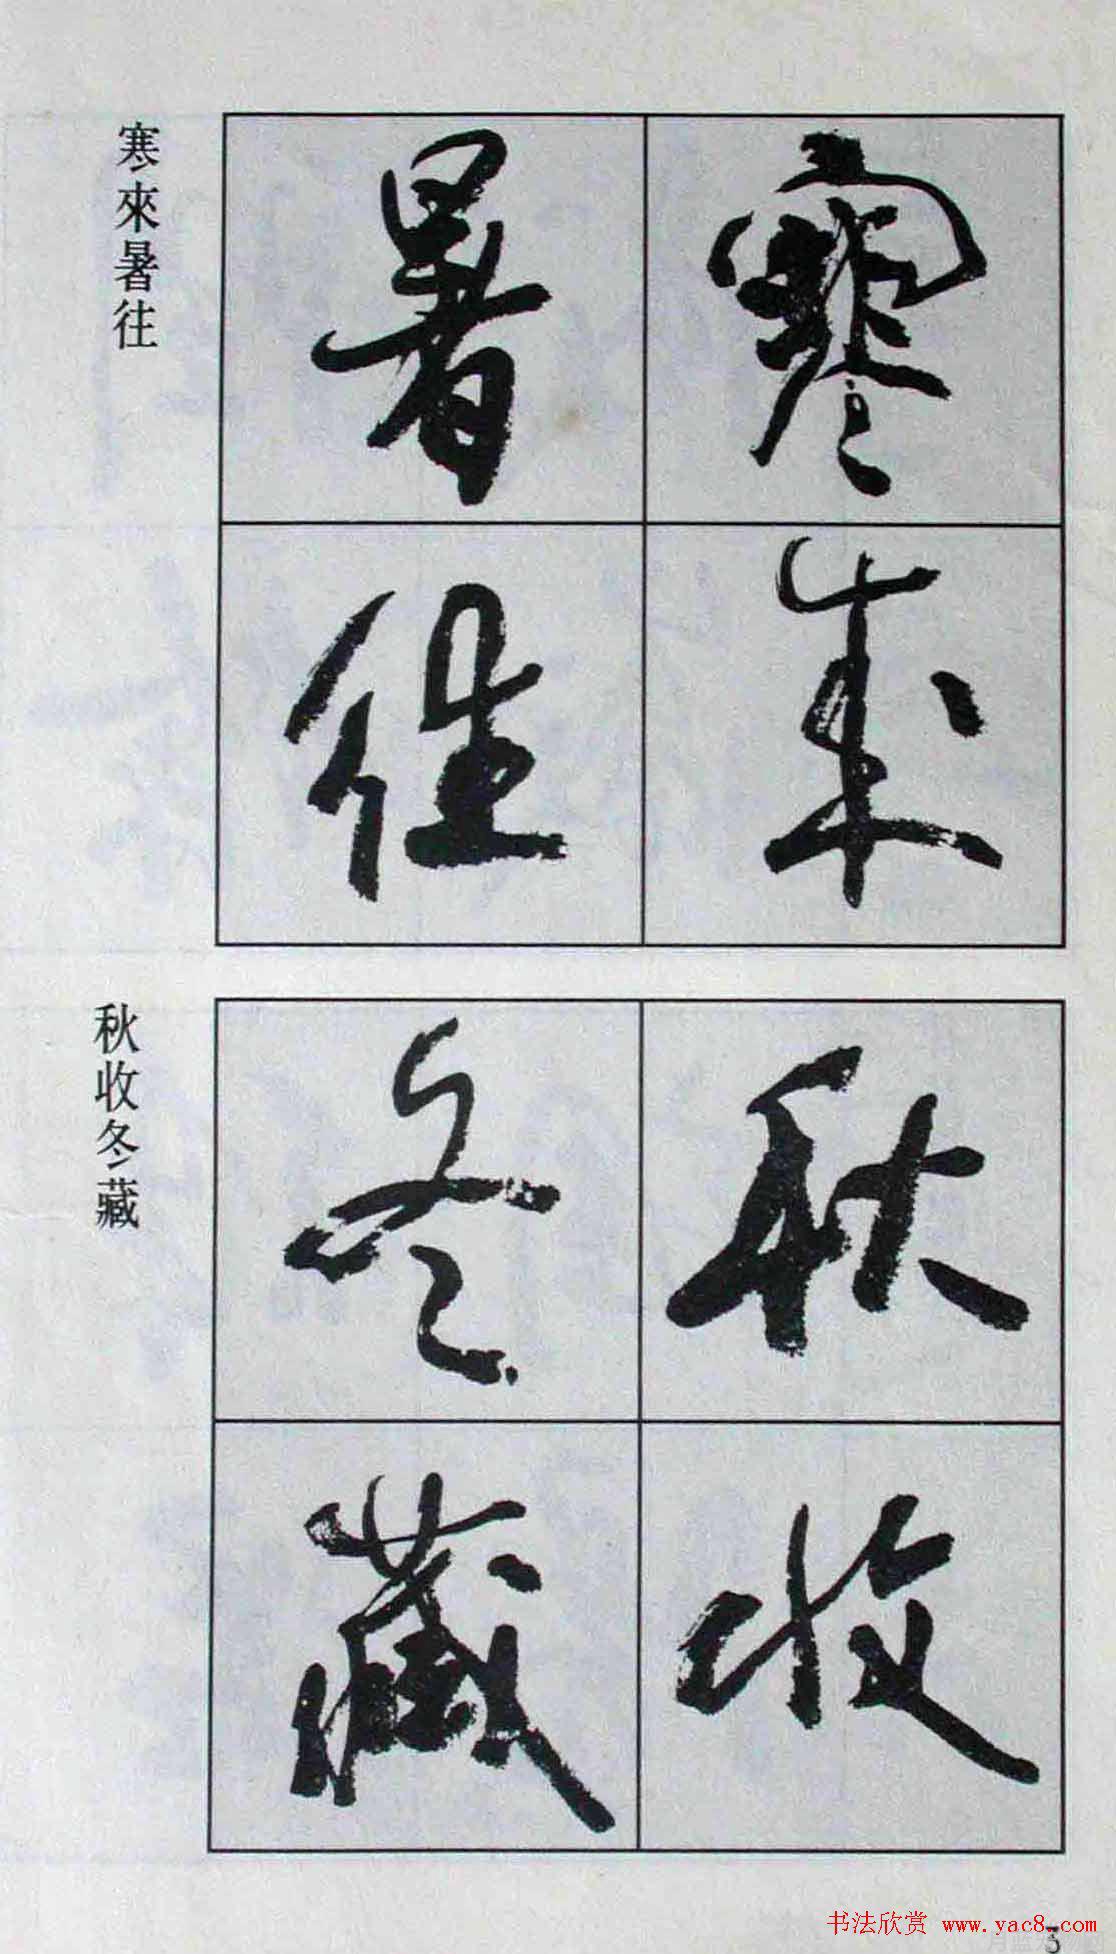 寒來
暑往
寒來暑往
秋收
冬藏
秋收冬藏
书法欣赏 www.yac8.com
3